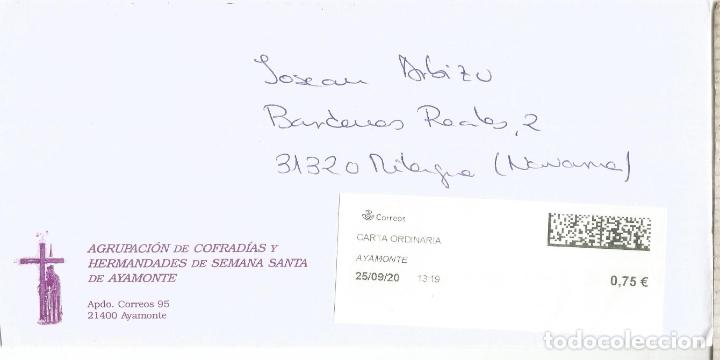 Josean Arbizu
Bardenas Reales, 2
31320 Milagro (Navarra)
Correos
CARTA ORDINARIA
AYAMONTE
25/09/20 13:19
0,75 €
AGRUPACIÓN DE COFRADÍAS Y
HERMANDADES DE SEMANA SANTA
DE AYAMONTE
Apdo. Correos 95
21400 Ayamonte
todocoleccion.net